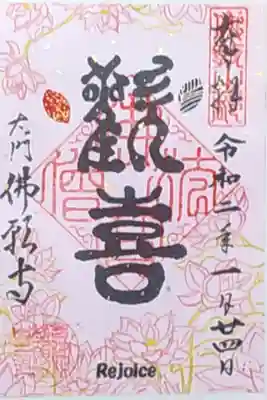 奉拝
令和二年一月廿四日
歡喜
大門 佛願寺
Rejoice